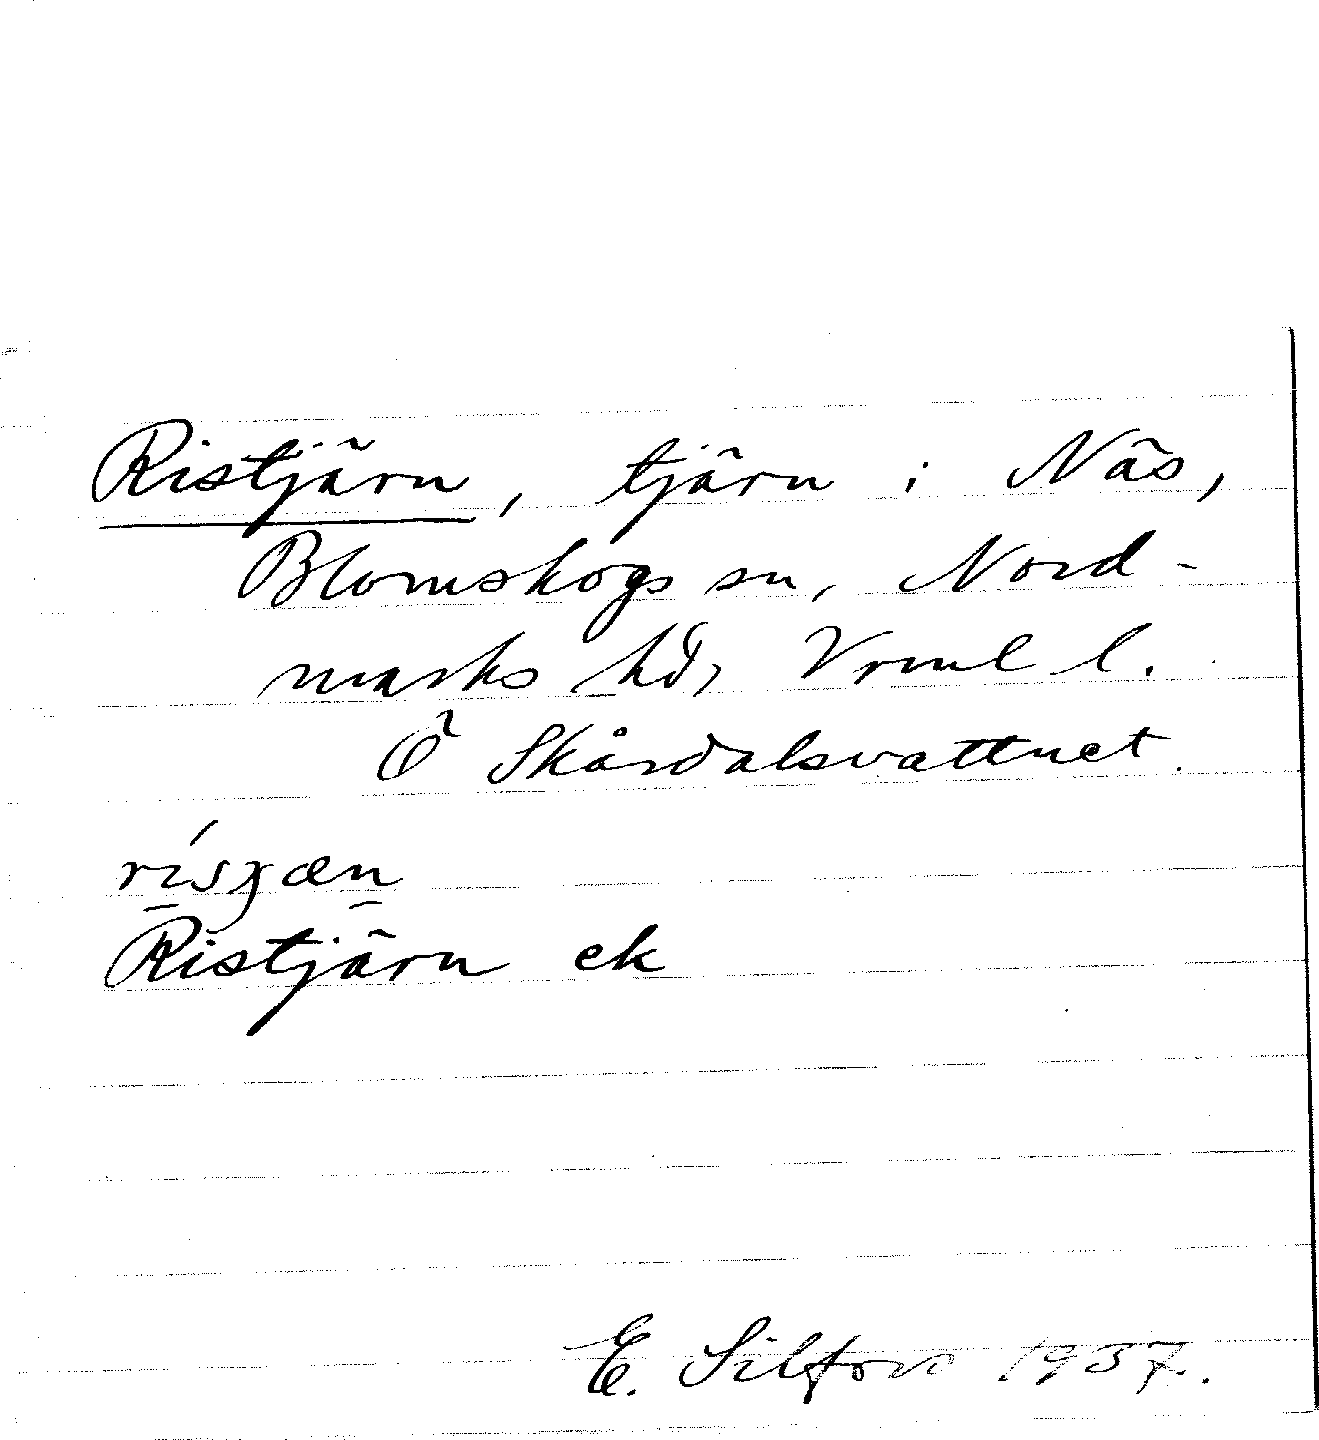 Ristjärn, tjärn i Näs,
Blomskogs sn, Nord-
marks hd, Vrml l.
Ö Skårdalsvattnet.
Ristjärn ek
E. 1937.